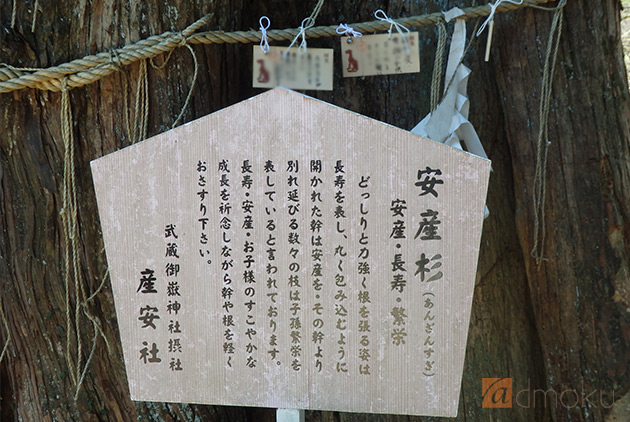 安産杉(あんざんすぎ)
安産・長寿・繁栄
どっしりと力強く根を張る姿は
長寿を表し、丸く包み込むように
開かれた幹は安産を・その幹より
別れ延びる数々の枝は子孫繁栄を
表していると言われております。
長寿・安産・お子様のすこやかな
成長を祈念しながら幹や根を軽く
おさすり下さい。
武蔵御嶽神社摂社
産安社
admoku